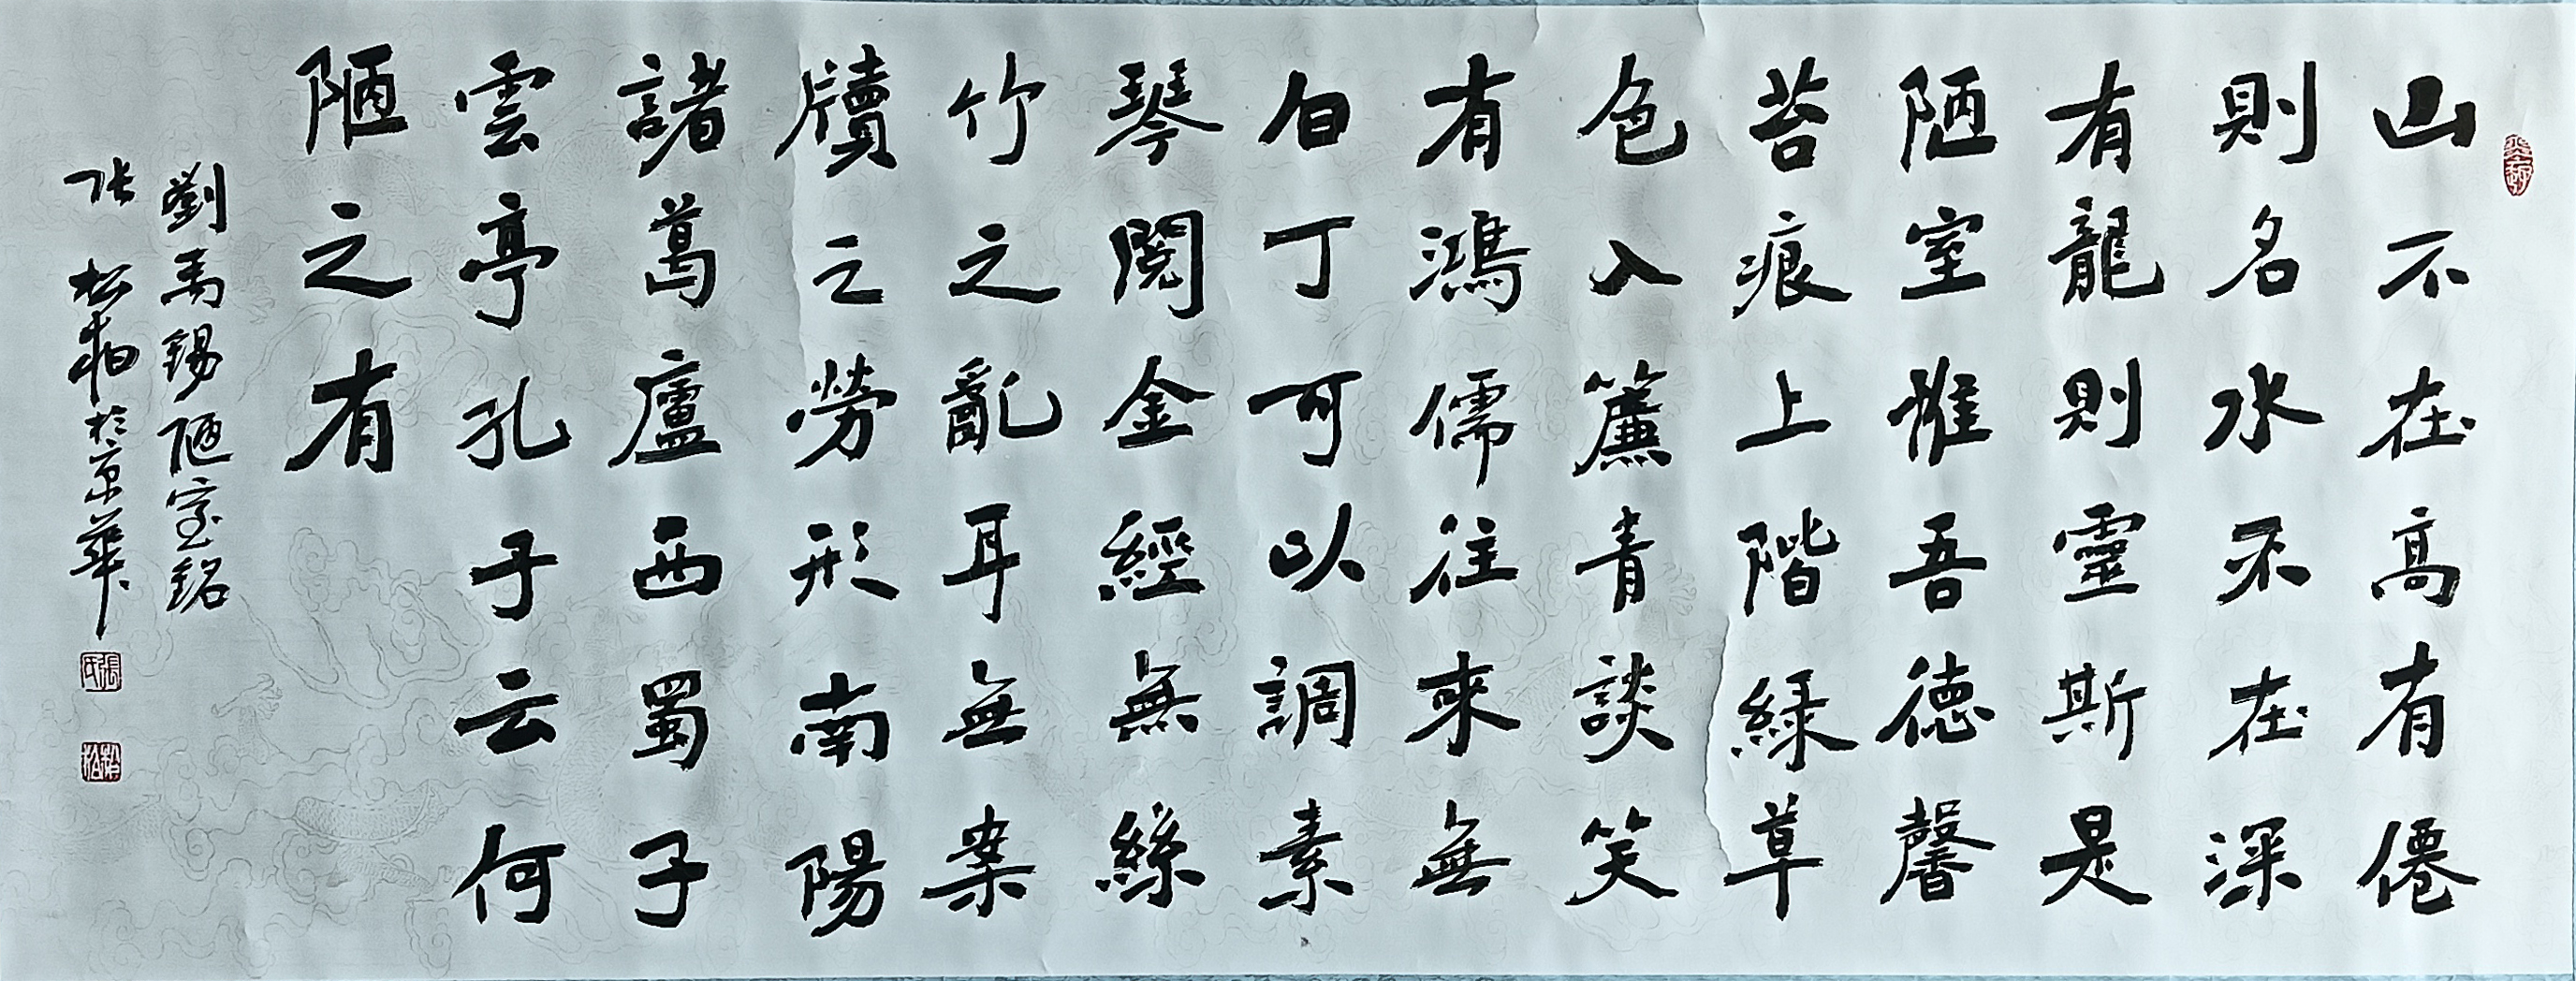 山不在高有僊
則名水不在深
有龍則靈斯是
陋室惟吾德馨
苔痕上階緑草
色入簾青談笑
有鴻儒往來無
白丁可以調素
琴閱金經無絲
竹之亂耳無案
牘之勞形南陽
諸葛廬西蜀子
雲亭孔子云何
陋之有
劉禹錫陋室銘
张松柏於京華
張氏